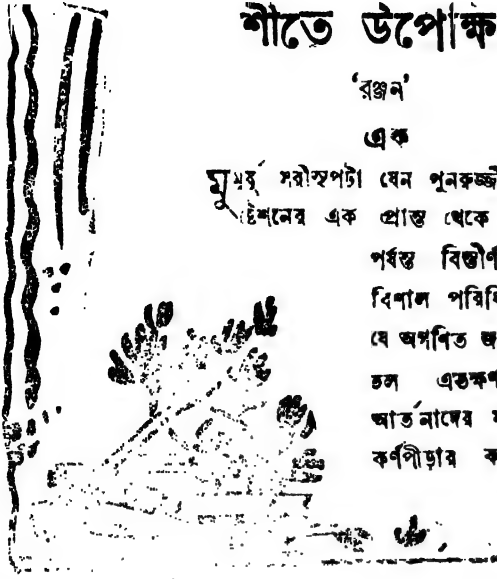 শীতে উপেক্ষি
‘রঞ্জন’
এক
মুমূর্ষু সরীসৃপটা যেন পুনরুজ্জী
ষ্টেশনের এক প্রান্ত থেকে
পর্যন্ত বিস্তীর্ণ
বিশাল পরিধি
যে অগণিত জ
তল এতক্ষণ
আর্তনাদের
কর্ণপীড়ার ক